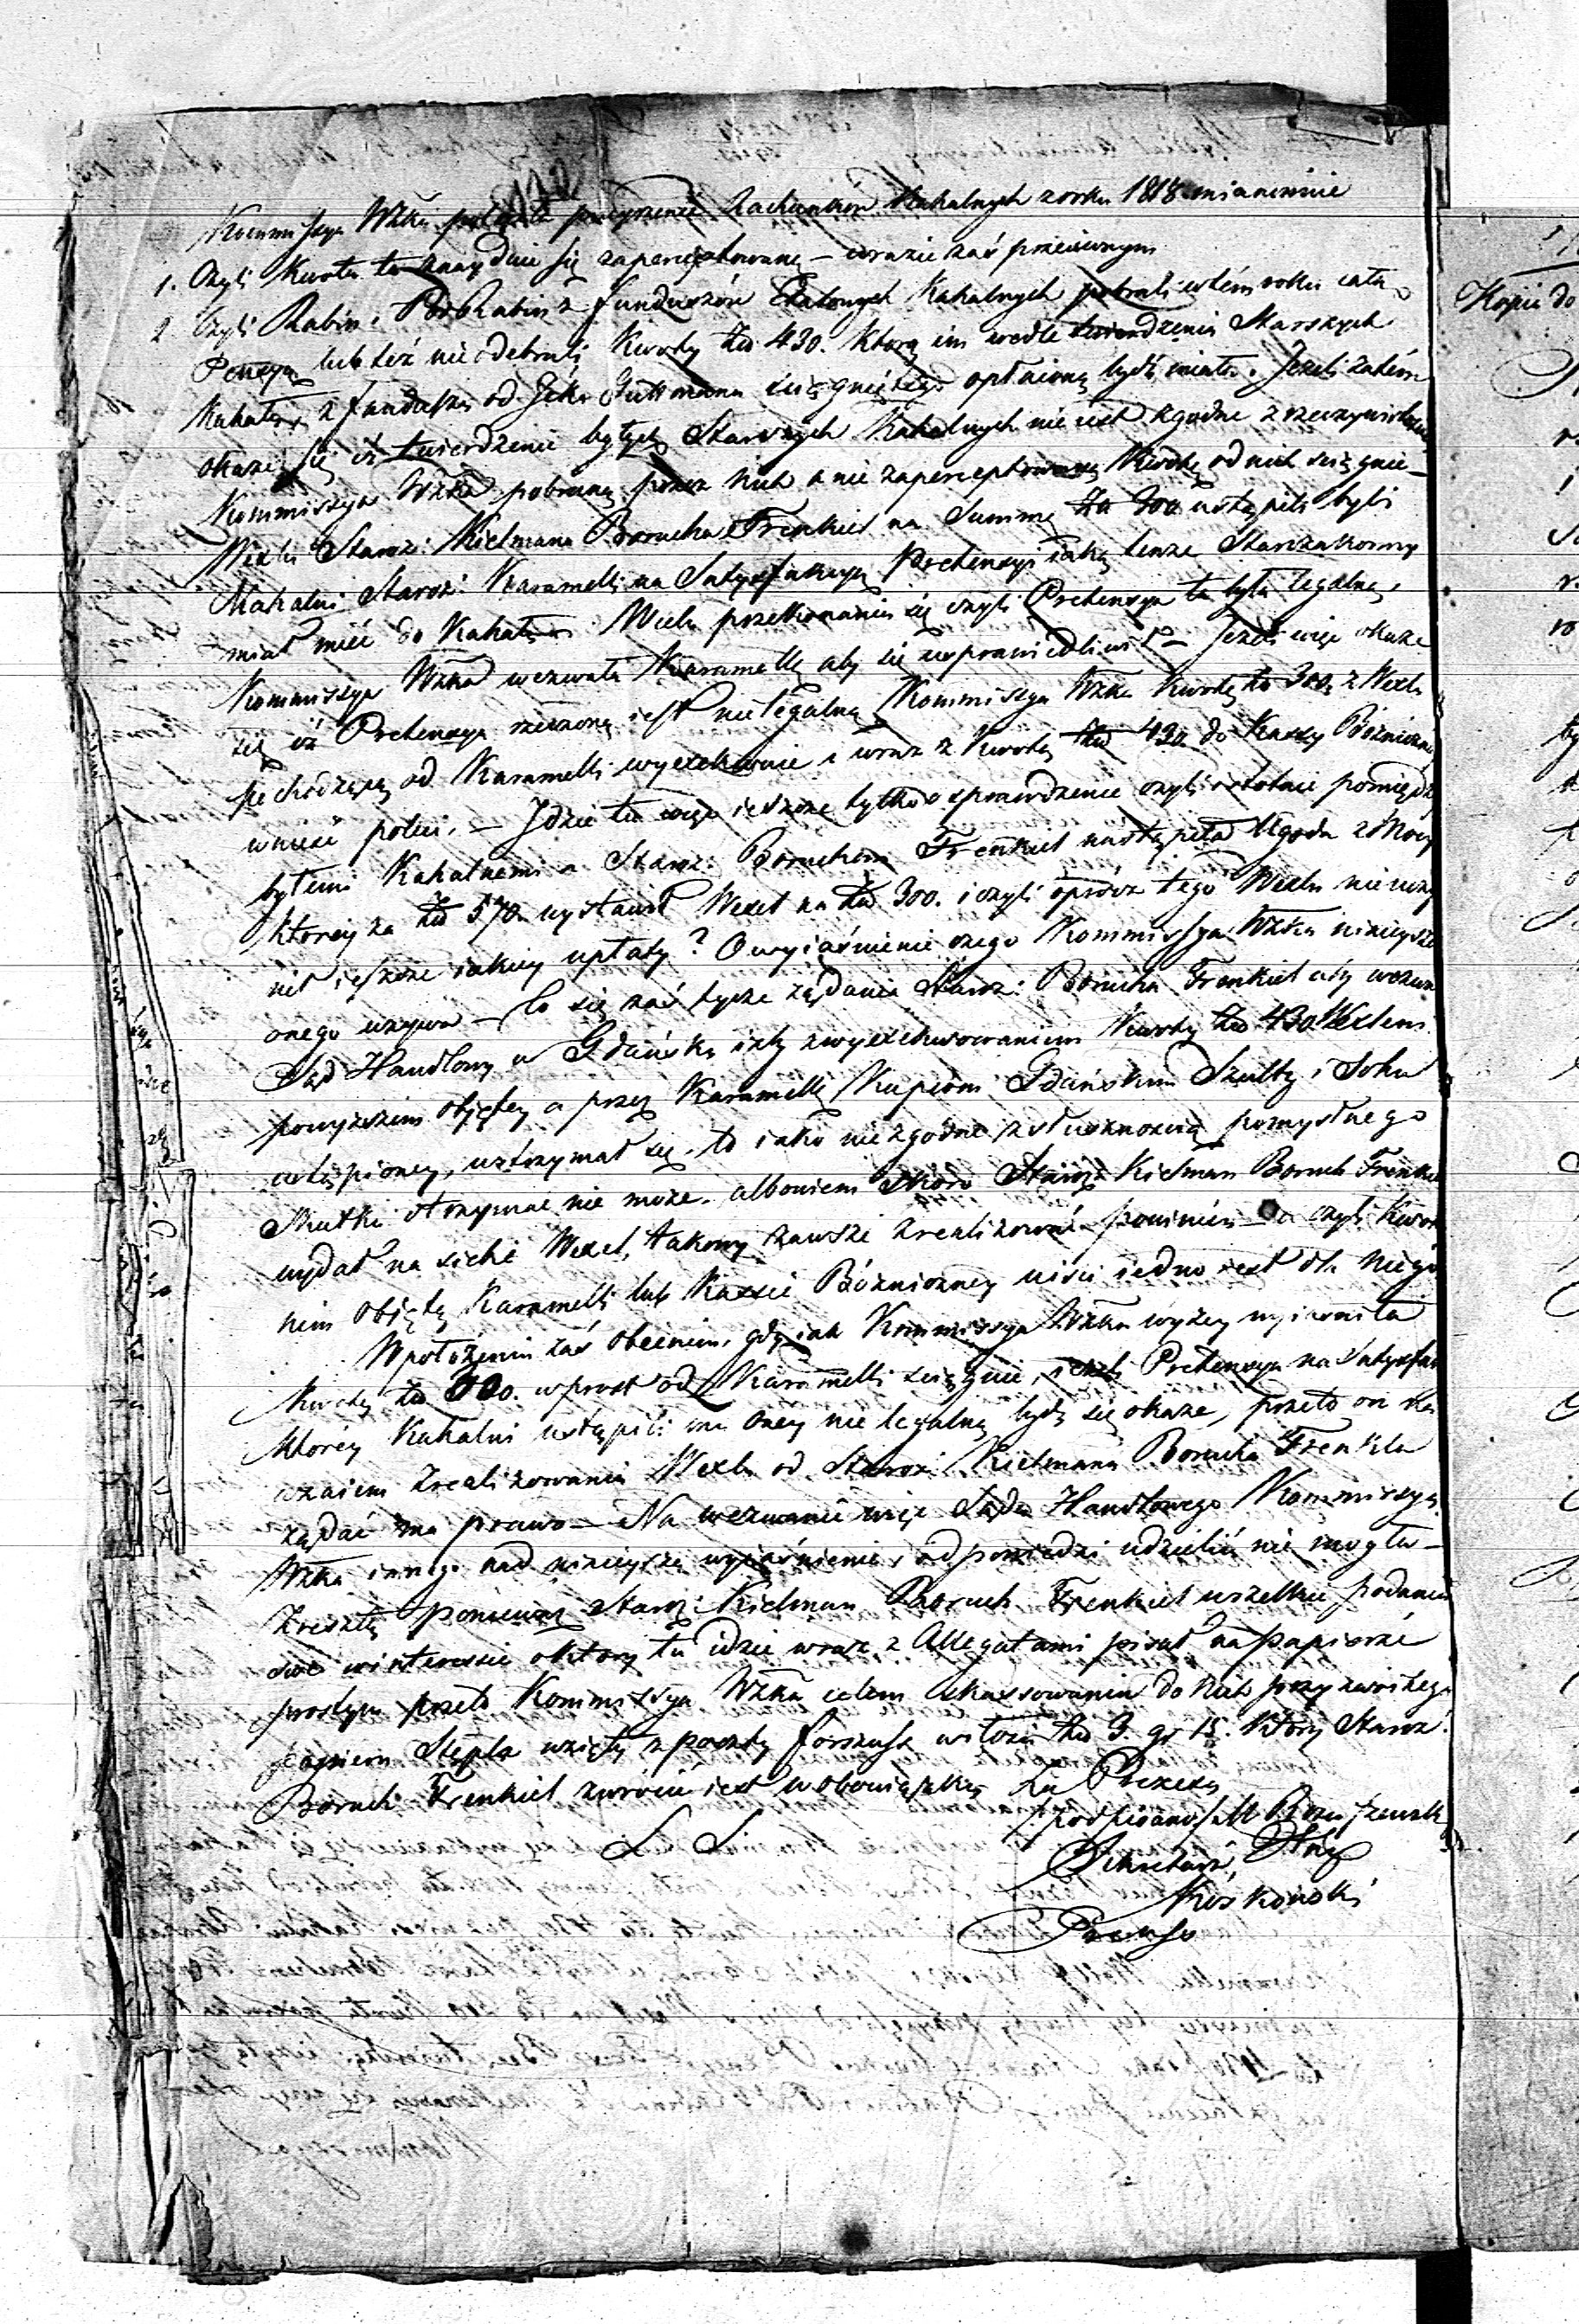 Kommissya Wzka poleciła przeyrzenie Rachunków Kahalnych z roku 1818 mianowicie
1. Czyli Kwota ta znayduie się zaperceptowaną – w razie zaś przeciwnym
2 Czyli Rabin i PodRabin z funduszów Kahalnych pobrali w tém roku całą
Pensyą lub też nie odebrali Kwoty Złł 430. którą im wedle twierdzenia Starszych
Kahału z funduszu od Guttmana ściągniętego opłaconą bydź miała. Jeżeli zatém
okaże się iż twierdzenie byłych Starszych Kahalnych nie iest zgodne z rzeczywistością
Kommissya Wzka pobraną przez nich a nie zaperceptowaną Kwotę od nich ściągnie –
Wexlu Staroz: Kielmana Borucha Frenkiel na Summę Złł 300 ustąpili byli
Kahalni Staroz: Karamelli na Satysfakcyą Pretensyi iaką tenże Starozakonny
miał mieć do Kahału. W celu przekonania się czyli Pretensya ta była legalną,
Kommissya Wzka wezwała Karamellę aby się usprawiedliwił – Jeżeli więc okaże
się iż Pretensya rzeczona iest nielegalną Kommissya Wzka Kwotę Złł 300 z Wexlu
pochodzącą od Karamelli wyexekwuie i wraz z Kwotą Złł 430. do Kassy Bóżniczney
wnieść poleci. – Idzie tu więc ieszcze tylko o sprawdzenie czyli istotnie pomiędzy
byłemi Kahalnemi a Staroz: Boruchem Frenkiel nastąpiła Ugoda z Mocy
którey za Złł 570. wystawił Wexel na Złł 300. i czyli oprócz tego Wexlu nie uczy
nił ieszcze iakiey upłaty? O wyiaśnienie czego Kommissya Wzka ninieysze
onego wzywa – Co się zaś tycze żądania Staroz: Borucha Frenkiel aby wezwać
Sąd Handlowy w Gdańsku iżby z wyexekwowaniem Kwoty Złł 430 Wexlem
powyższem objętey a przez Karamellę Kupcom Gdańskim Szultz i Sohn
ustąpioney, wstrzymał się, to iako niezgodne z słusznością pomyślnego
Skutku otrzymać nie może. albowiem skoro Staroz: Kielman Boruch Frenkiel
wydał na siebie Wexel, takowy zawsze zrealizować powinien – a czyli Kwotę
nim objętą Karamelli lub Kassie Bóżniczney uiści iedno iest dla niego
W położeniu zaś obecnem, gdy iak Kommissya Wzka wyżey wyiawiła
Kwotę Złł 300. wprost od Karamelli ściągnie, ieżeli Pretensya na Satysfak
którey Kahalni ustąpili mu oney nie legalną bydź się okaże, przeto on na
wzaiem zrealizowania Wexlu od Staroz: Kielmana Borucha Frenkla
żądać ma prawo – Na wezwanie więc Sądu Handlowego Kommissya
Wzka innego nad ninieysze wyiaśnienie, odpowiedzi udzielić nie mogła –
Zresztą ponieważ Staroz: Kielman Boruch Frenkiel wszelkie podania
swe w interessie o który tu idzie wraz z Allegatami pisał na papierze
prostym przeto Kommissya Wzka celem skassowania do nich przyzwoitego
papieru Stępla wzięty z poczty forszuss w ilości Złł 3. gr 15. który Staroz:
Boruch Frenkiel zwrócić iest w obowiązku Za Prezesa
L S /podpisano/
Sekretarz